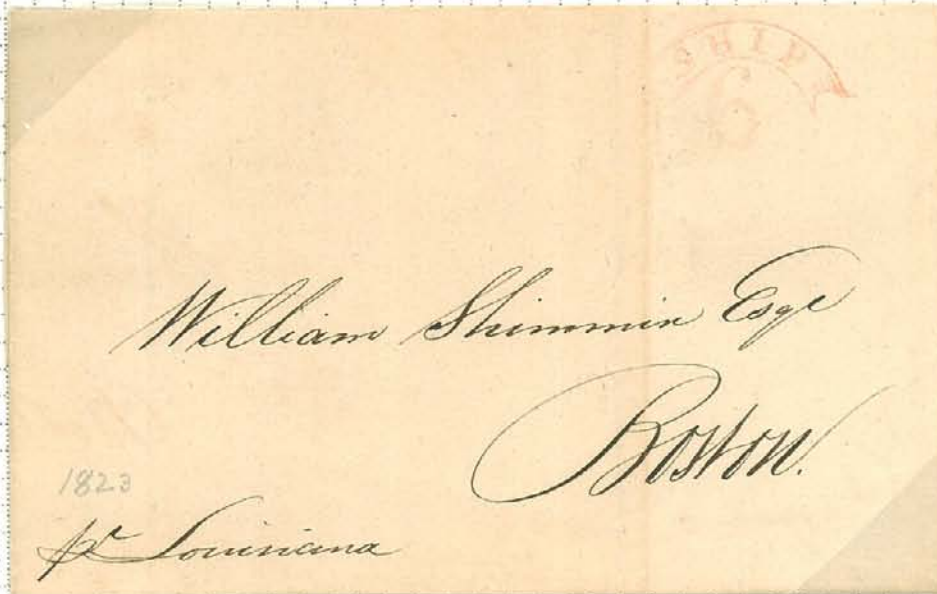 SHIP
6
William Shimmin Esqr
Boston.
1823
pr Louisiana